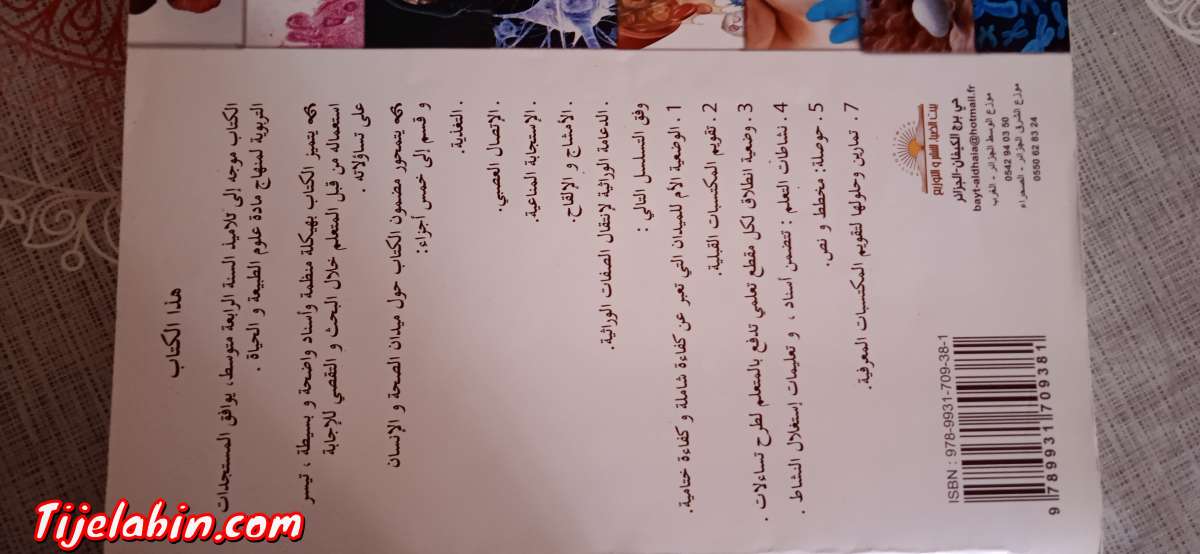 هذا الكتاب
الكتاب موجه إلى تلاميذ السنة الرابعة متوسط، يوافق المستجدات
التربوية لمنهاج مادة علوم الطبيعة و الحياة .
يتميز الكتاب بهيكلة منظمة وأسناد واضحة و بسيطة ، تيسر
استعماله من قبل المتعلم خلال البحث و التقصي للإجابة
على تساؤلاته .
يتمحور مضمون الكتاب حول ميدان الصحة و الإنسان
و قسم إلى خمس أجزاء:
. التغذية.
. الإتصال العصبي.
. الإستجابة المناعية.
. الأمشاج و الإلقاح.
. الدعامة الوراثية لإنتقال الصفات الوراثية.
وفق التسلسل التالي :
1 . الوضعية الأم للميدان التي تعبر عن كفاءة شاملة و كفاءة ختامية.
2 . تقويم المكتسبات القبلية.
3 . وضعية انطلاق لكل مقطع تعلمي تدفع بالمتعلم لطرح تساءلات .
4 . نشاطات التعلم : تتضمن أسناد ، و تعليمات إستغلال النشاط .
5 . حوصلة: مخطط و نص.
7 . تمارين وحلولها لتقويم المكتسبات المعرفية.
حي برج الكيفان-الجزائر
bayt-aldhaia@hotmail.fr
موزع الوسط الجزائر - الغرب
0542 94 03 50
موزع الشرق الجزائر - الصحراء
0550 62 83 24
ISBN : 978-9931-709-38-1
9 789931 709381
Tijelabin.com